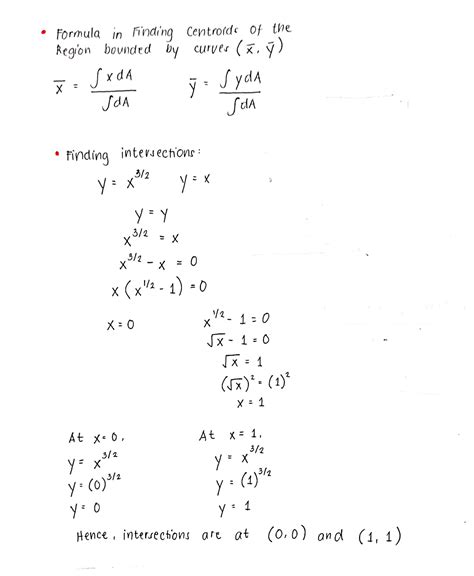 • Formula in Finding Centroids of the
Region bounded by curves (x̄, ȳ)
x̄ = ∫xdA / ∫dA    ȳ = ∫ydA / ∫dA
• Finding intersections:
y = x^3/2    y = x
y = y
x^3/2 = x
x^3/2 - x = 0
x(x^1/2 - 1) = 0
x = 0    x^1/2 - 1 = 0
√x - 1 = 0
√x = 1
(√x)² = (1)²
x = 1
At x = 0,    At x = 1,
y = x^3/2    y = x^3/2
y = (0)^3/2    y = (1)^3/2
y = 0    y = 1
Hence, intersections are at (0,0) and (1,1)